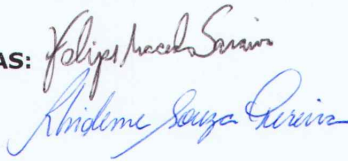 AS: Felipe Macedo Saraiva
Souza Pereira